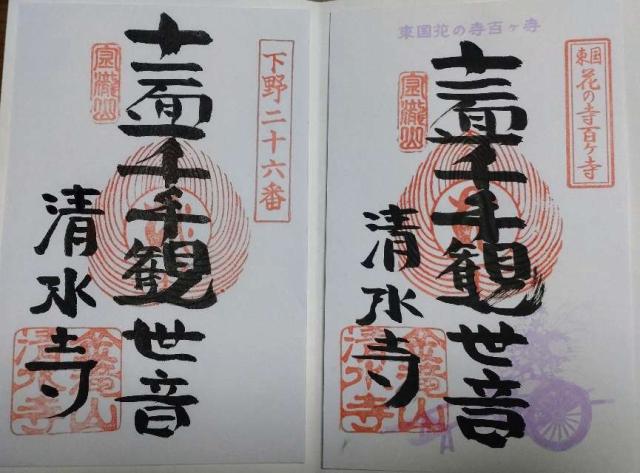 下野二十六番
十一面千手観世音
清水寺
清水寺
東国花の寺百ヶ寺
東国
花の寺百ヶ寺
十一面千手観世音
清水寺
清水寺